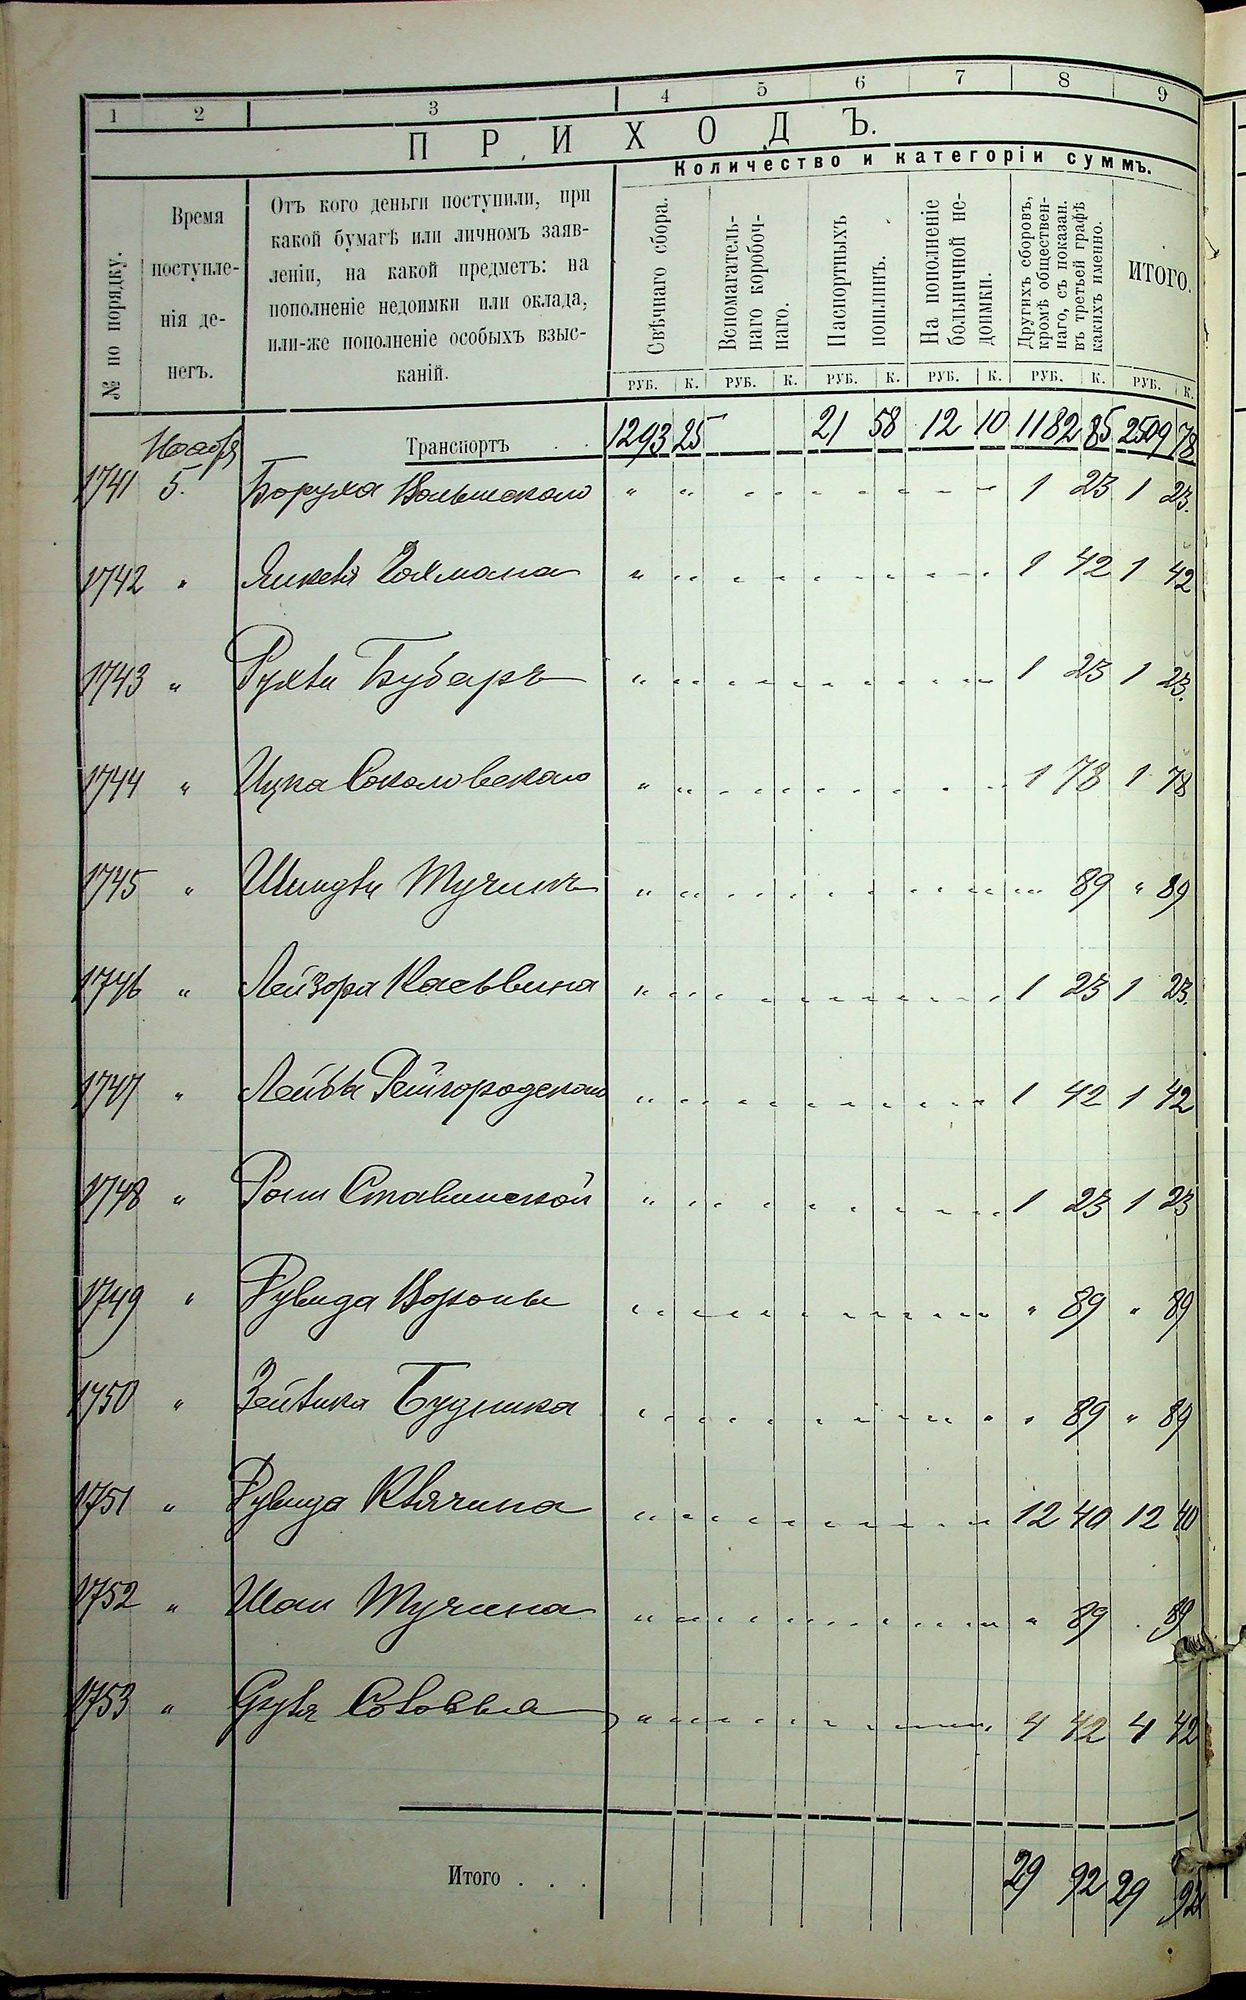 1 2 3 4 5 6 7 8 9
ПРИХОДЪ.
Количество и категоріи суммъ.
№ по порядку.
Время
поступле-
нія де-
негъ.
Отъ кого деньги поступили, при
какой бумагѣ или личномъ заяв-
леніи, на какой предметъ: на
пополненіе недоимки или оклада,
или-же пополненіе особыхъ взыс-
каній.
Свѣчнаго сбора.
Вспомагатель-
наго коробоч-
наго.
Паспортныхъ
пошлинъ.
На пополненіе
больничной не-
доимки.
Другихъ сборовъ,
кромѣ обществен-
наго, съ показан.
въ третьей графѣ
какихъ именно.
ИТОГО.
РУБ. К. РУБ. К. РУБ. К. РУБ. К. РУБ. К. РУБ. К.
Ноября Транспортъ 1293 25 21 58 12 10 1182 85 2509 78
1741 5. Боруха 1 23 1 23.
1742 " 1 42 1 42
1743 " 1 23 1 23.
1744 " Ицка Соколовскаго 1 78 1 78
1745 " 89 " 89
1746 " Лейзора 1 23 1 23.
1747 " Лейбы Рейгородскаго 1 42 1 42
1748 " Ставинской 1 23 1 23
1749 " Рувида " 89 " 89
1750 " Будника " 89 " 89
1751 " Рувида 12 40 12 40
1752 " Тучина " 89 89
1753 " 4 42 4 42
Итого . . . 29 92 29 92